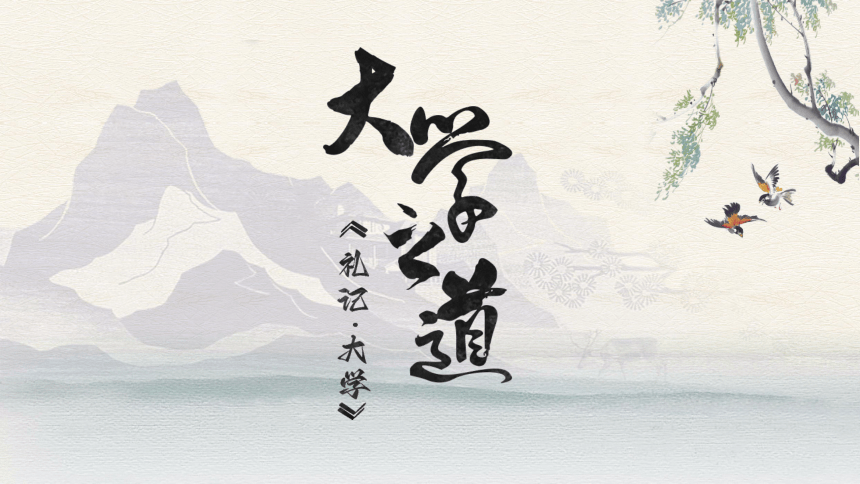 大学之道
《礼记·大学》